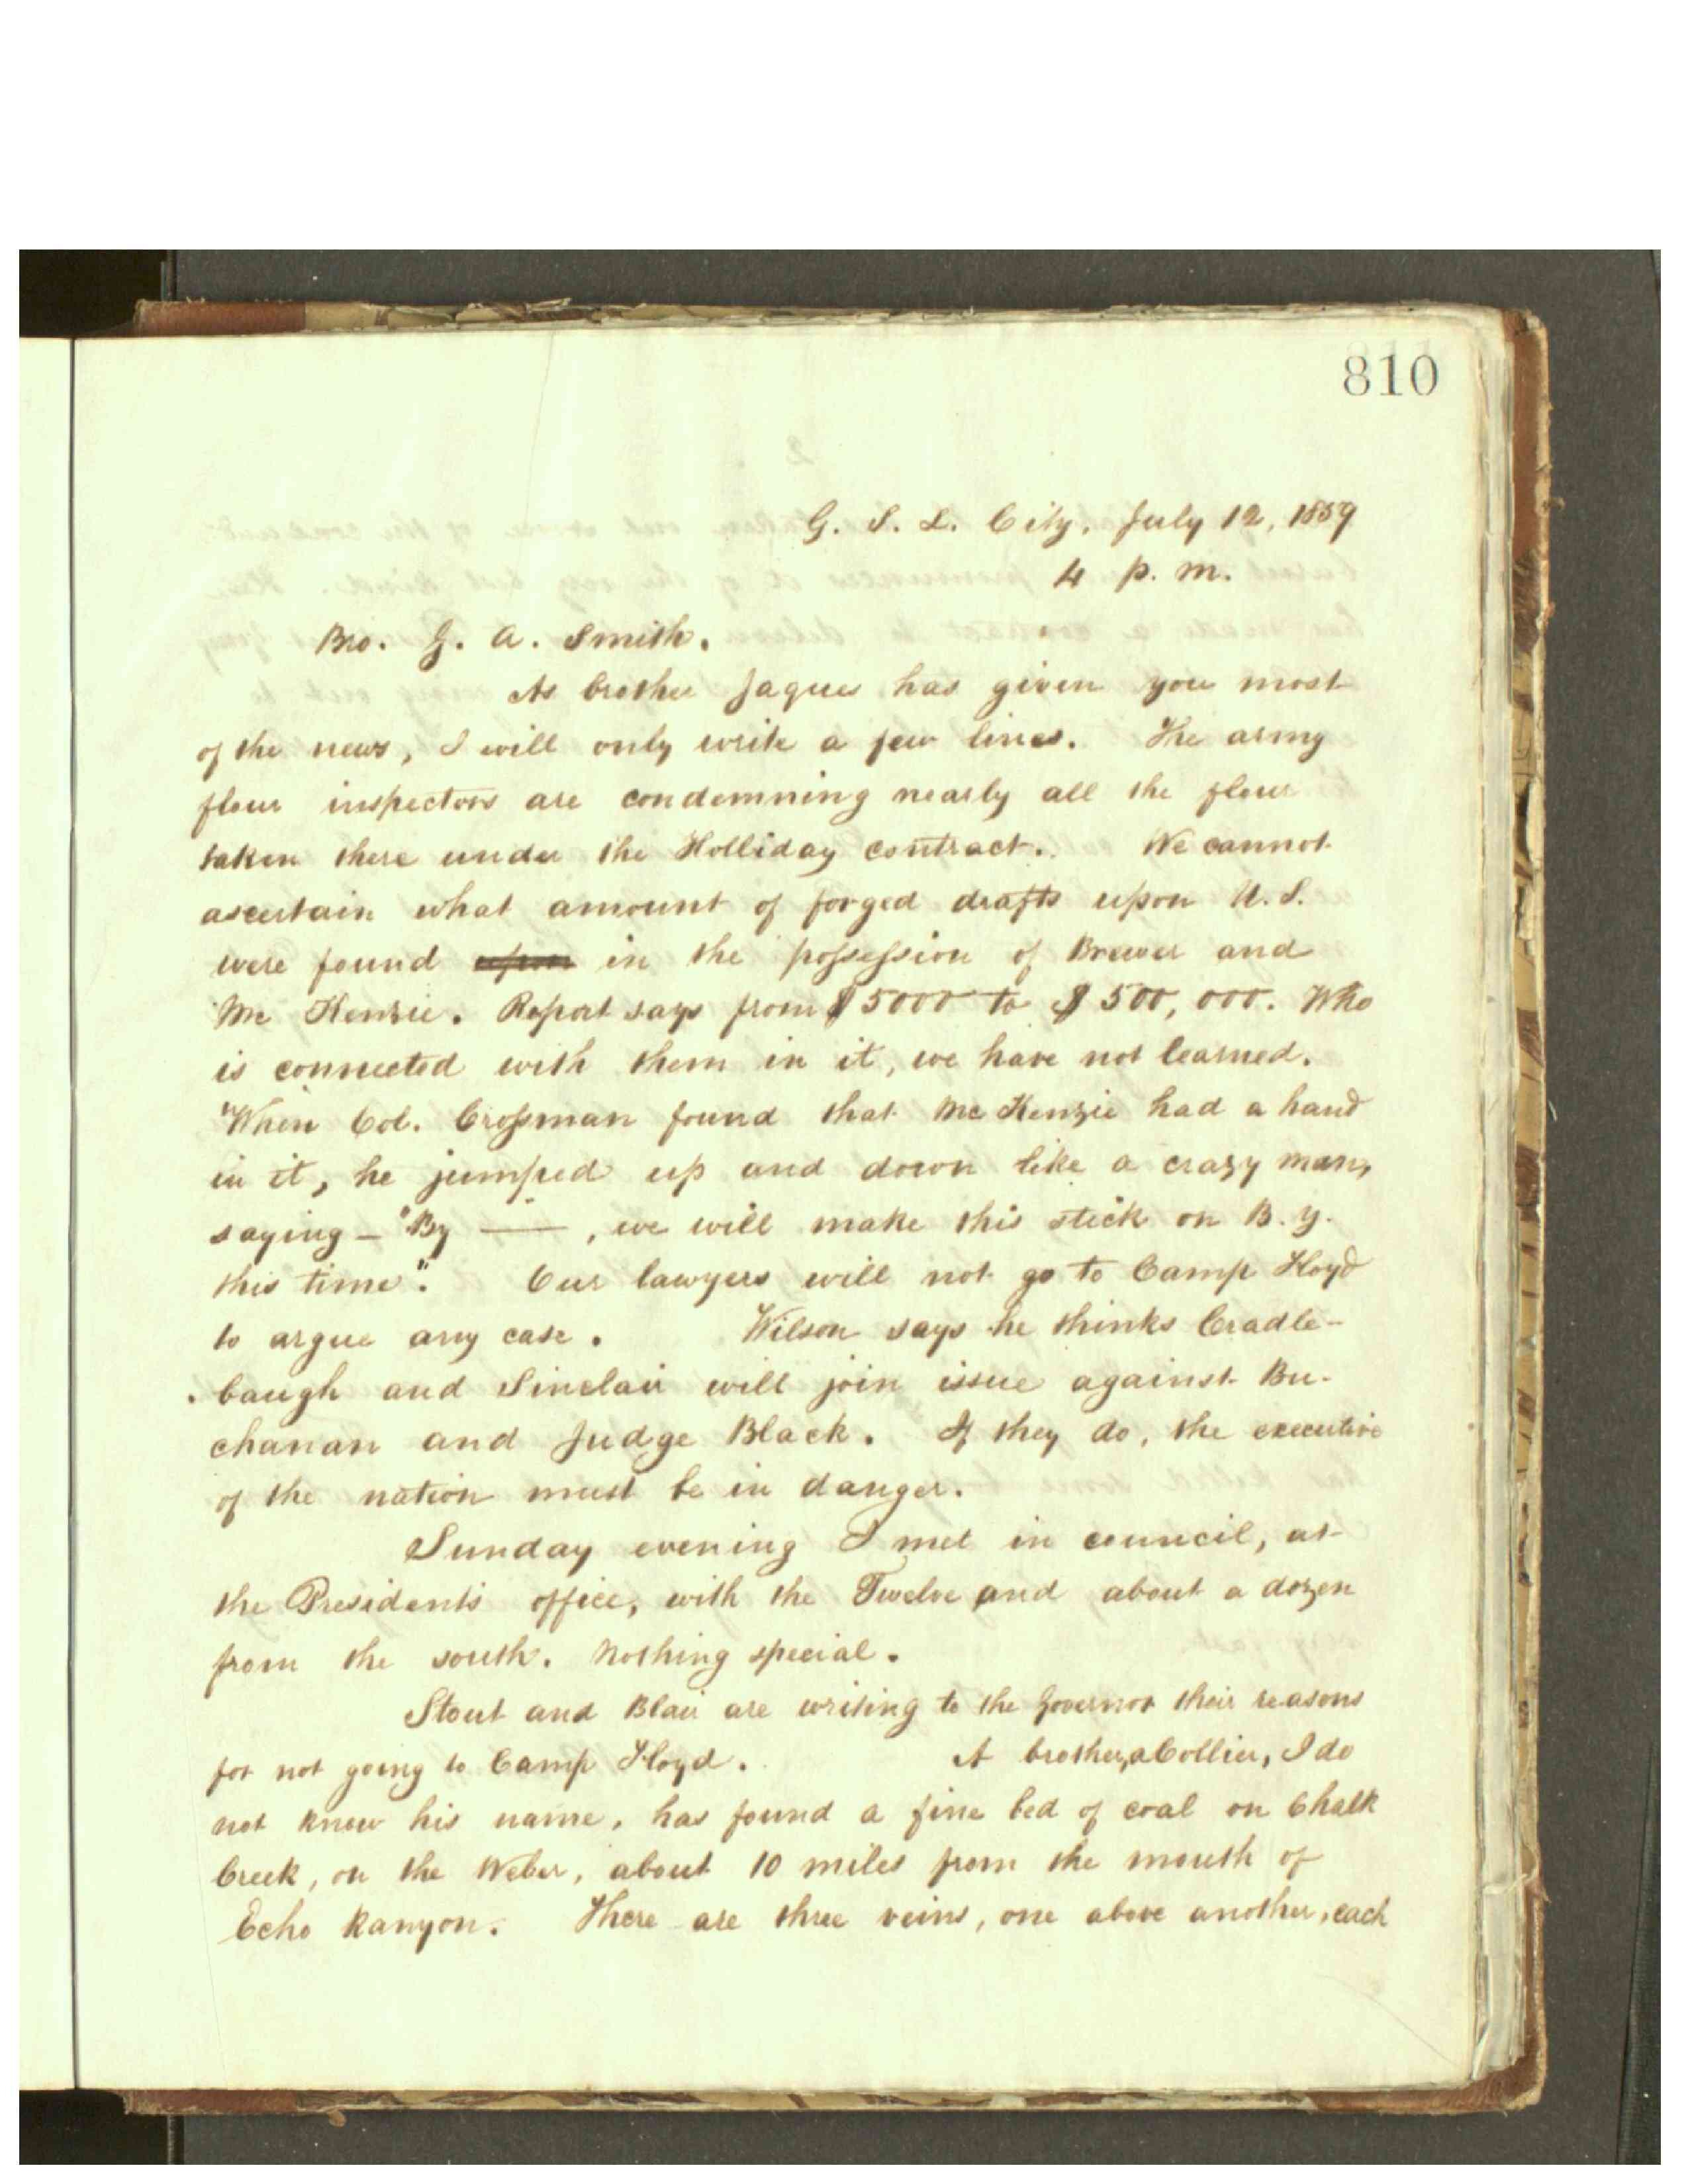 810
G. S. L. City, July 12, 1859
4 p. m.
Bro. G. A. Smith.
As brother Jaques has given you most
of the news, I will only write a few lines. The army
flour inspectors are condemning nearly all the flour
taken there under the Holliday contract. We cannot
ascertain what amount of forged drafts upon U. S.
were found upon in the possession of Brewer and
Mc Kenzie. Report says from $5000 to $500,000. Who
is connected with them in it, we have not learned.
"When Col. Crossman found that McKenzie had a hand
in it, he jumped up and down like a crazy man,
saying – "By —— , we will make this stick on B. Y.
this time". Our lawyers will not go to Camp Floyd
to argue any case. Wilson says he thinks Cradle-
baugh and Sinclair will join issue against Bu-
chanan and Judge Black. If they do, the executive
of the nation must be in danger.
Sunday evening I met in council, at
the Presidents office, with the Twelve and about a dozen
from the south. Nothing special.
Stout and Blair are writing to the Governor their reasons
for not going to Camp Floyd. A brother, a Collier, I do
not know his name, has found a fine bed of coal on Chalk
Creek, on the Weber, about 10 miles from the mouth of
Echo Kanyon. There are three veins, one above another, each